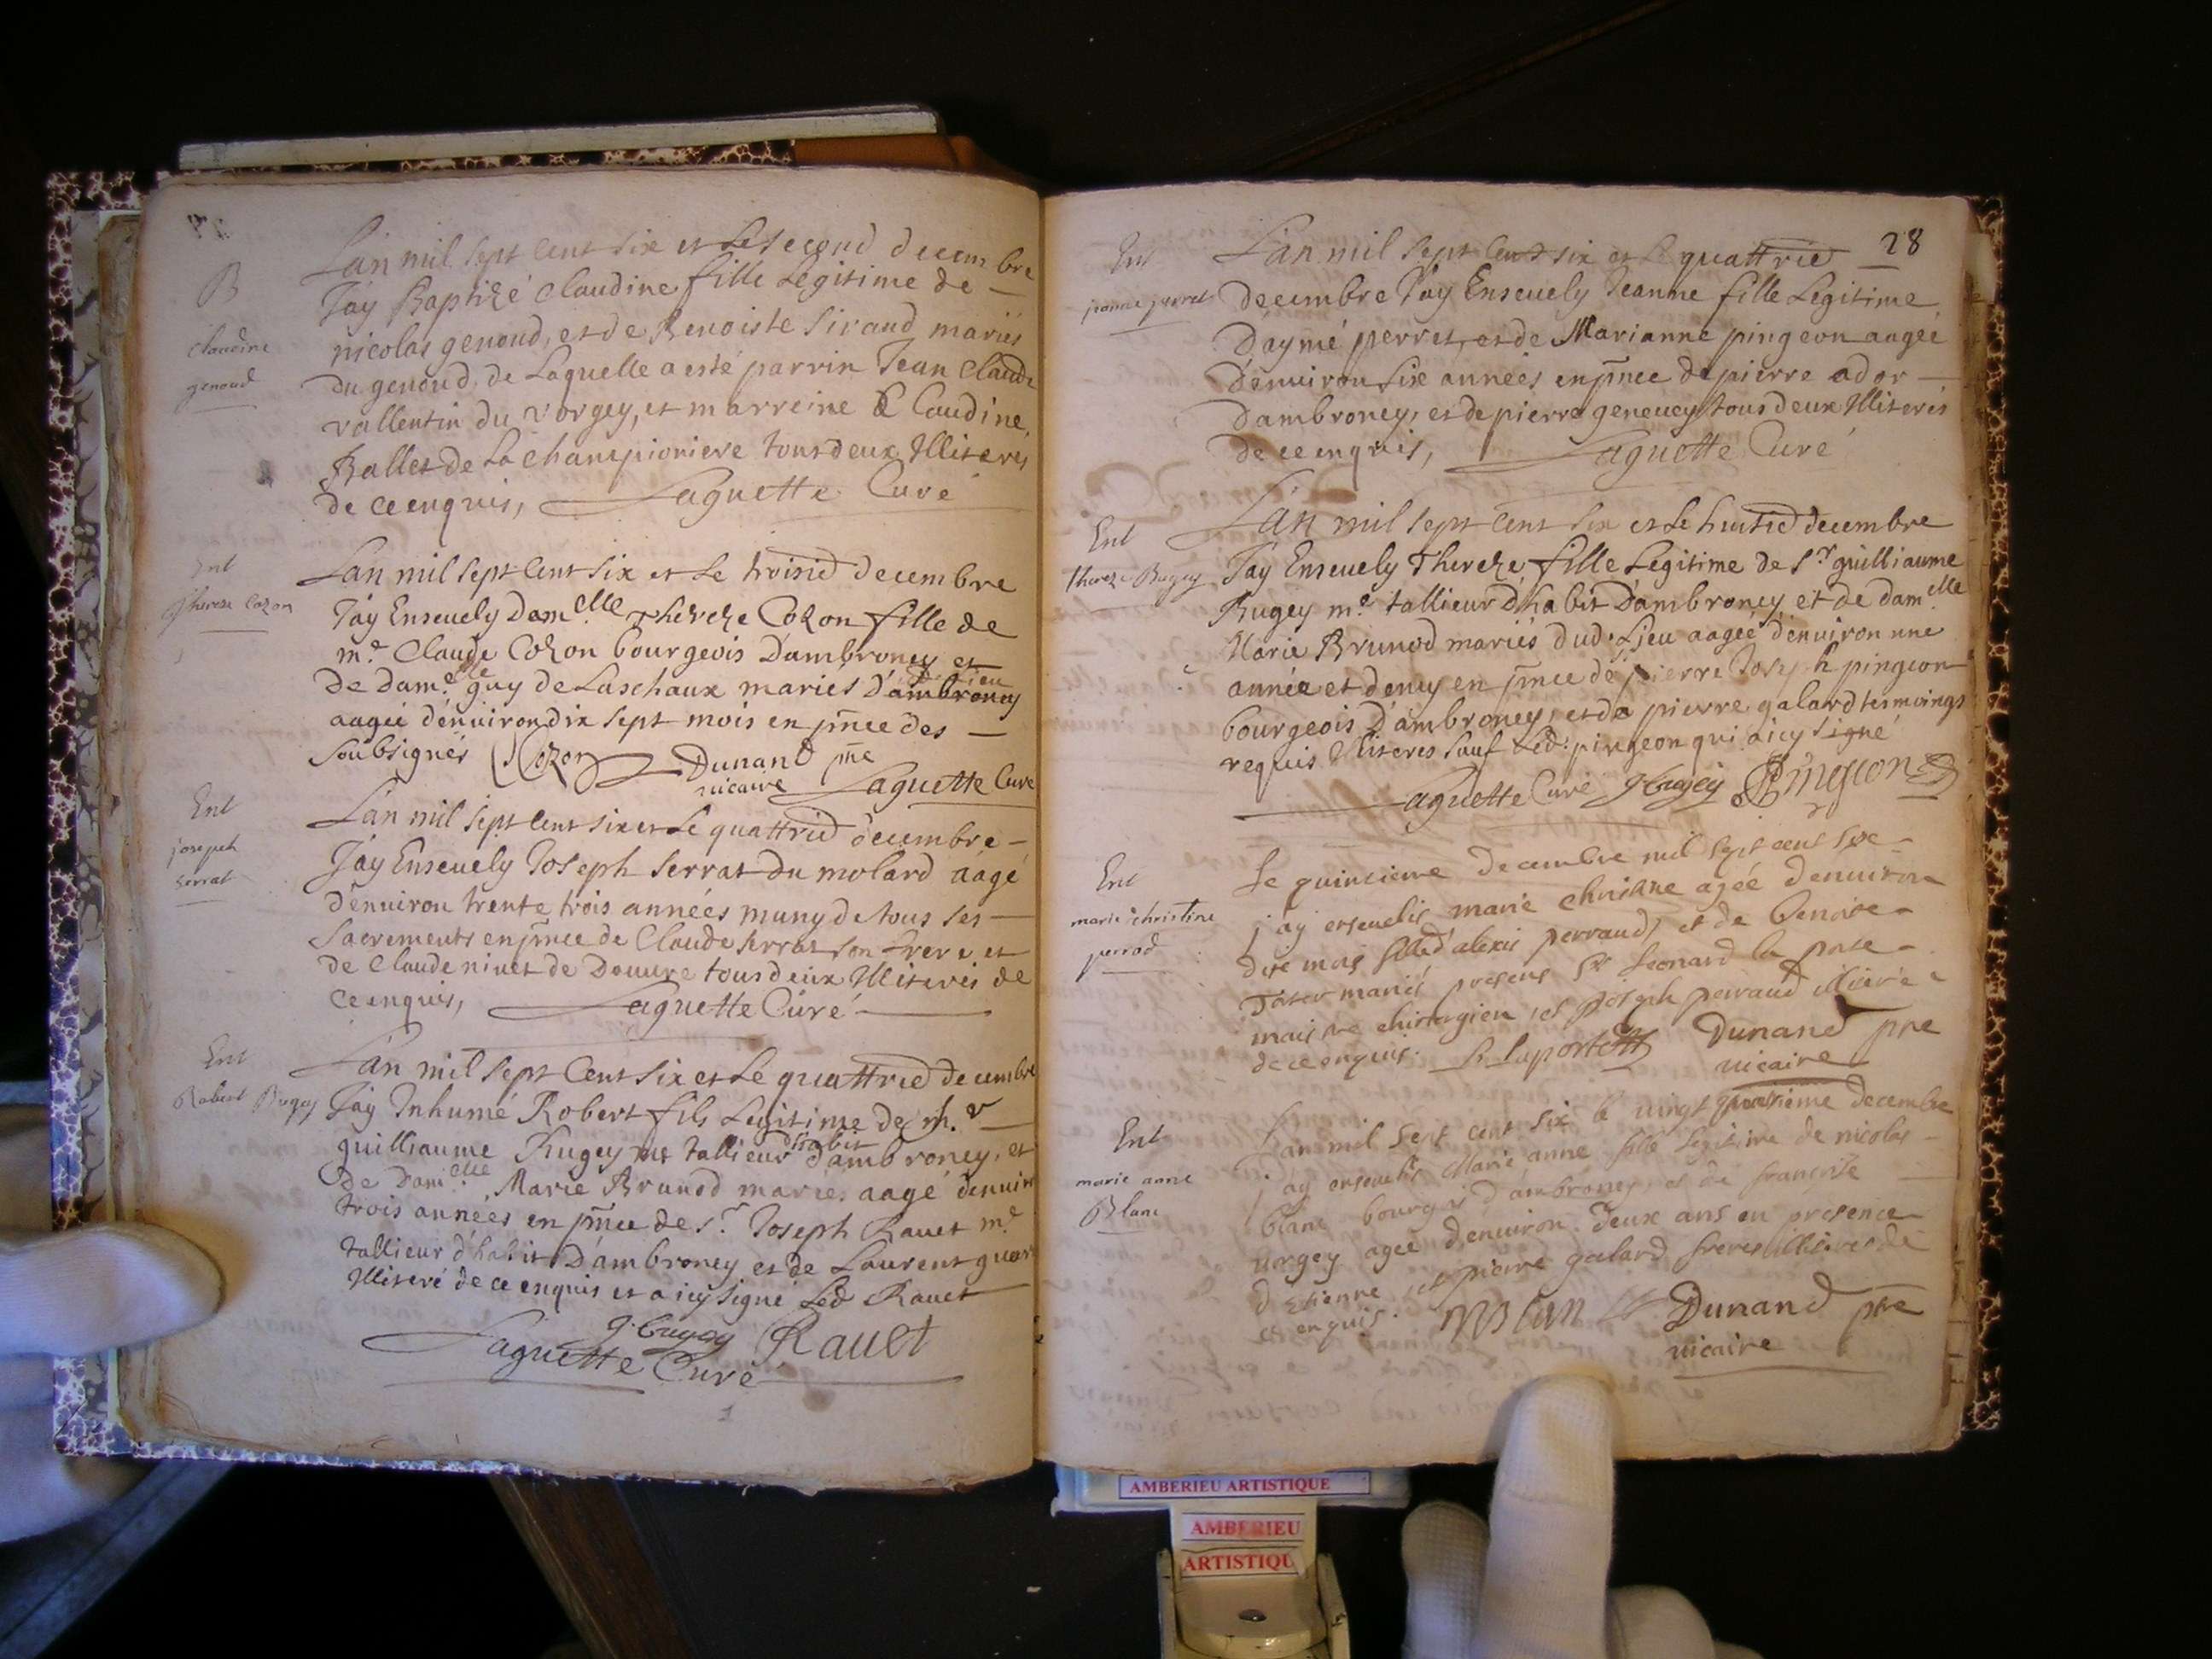 B
claudine
genoud
Lan mil sept cent six et Le second decembre
Jáy Baptizé Claudine fille Légitime de
nicolas genoud, et de Benoiste Siraud mariés
du genoud, de Laquelle a esté parrin Jean Claude
vallentin du vorgey, et marreine Claudine
Ballet de La championiere tous deux Illiteres
de ce enquis, Laguette Curé
Ent
Thereze Cozon
Lan mil sept Cent six et Le troisie decembre
Jáy Enseuely Dam.elle Thereze Cozon fille de
m.e Claude Cozon bourgeois D'ambroney et
de dam.elle guy de Laschaux mariés D'ambroney
aagée dénuiron dix sept mois en pnce des
soubsignés Cozon Dunand pre
uicaire Laguette Curé
Ent
joseph
serrat
Lan mil sept Cent six et Le quattrie decembre
Jáy Enseuely Joseph Serrat du molard áagé
dénuiron trente trois années muny de tous ses
Sacrements en pnce de Claude serrat son frere et
de Claude niuet de Douure tous deux Illiterés de
ce enquis, Laguette Curé
Ent
Robert Bugey
Lan mil sept Cent six et Le quattrie decembre
Jáy Inhumé Robert fils Legitime de
guilliaume Bugey me tallieur d'habit d'ambroney, et
de Dam.elle Marie Brunod maries aagé denuiro
trois années en pnce de s.r Joseph Rauet m.e
tallieur d'habit D'ambroney et de Laurent
Illiteré de ce enquis et a icy signé Led Rauet
g. bugey Rauet
Laguette Curé
28
Ent
jeanne perret
Lan mil sept Cent six et Le quattrie
decembre Jáy Enseuely Jeanne fille Legitime
D'aymé perret, et de Marianne pingeon aageé
dénuiron six années en pnce de pierre ador
Dambroney, et de pierre geneuey tous deux Illiterés
de ce enquis, Laguette Curé
Ent
thereze Bugey
Lan mil sept Cent six et Le huitie decembre
Jáy Enseuely Thereze fille Legitime de S.r guilliaume
Bugey m.e tallieur D'habit D'ambroney et de dam.elle
Marie Brunod mariés dud. Lieu aageé dénuiron une
année et demy en pnce de pierre Joseph pingeon
bourgeois D'ambroney, et de pierre galard tesmoings
requis Illiteres sauf Led: pingeon qui a icy signé
Laguette Curé g bugey Pingeon
Ent
marie christine
perrod
Le quinzieme decembre mil sept cent six
j ay enseuelis marie christine agée denuiron
dix mois fille d'alexis perraud, et de benoite
mariés presens Sr Leonard la porte
maistre chirurgien, et joseph perraud illiteré
de ce enquis. L. laporte Dunand pre
uicaire
Ent
marie anne
Blanc
Lan mil sept cent six le uingt decembre
j ay enseuelis Marie anne fille legitime de nicolas
blanc bourgois d'ambroney, et de francoise
urgey agée denuiron deux ans en presence
d Etienne, et pierre galard freres illiteres de
ce enquis. Dunand pre
uicaire
AMBERIEU ARTISTIQUE
AMBERIEU
ARTISTIQU